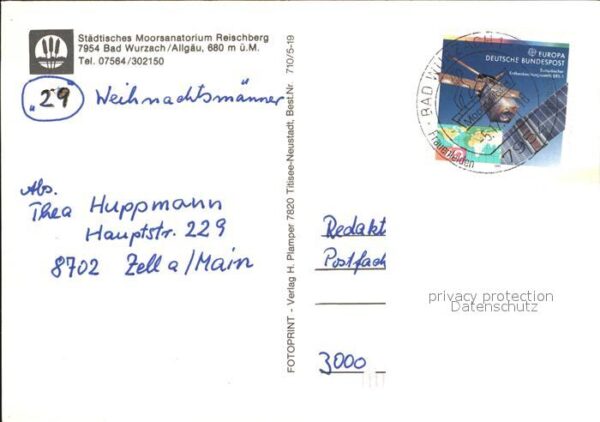 Städtisches Moorsanatorium Reischberg
7954 Bad Wurzach/Allgäu, 680 m ü.M.
Tel. 07564/302150
"29" Weihnachtsmänner
Abs.
Thea Huppmann
Hauptstr. 229
8702 Zell a/Main
FOTOPRINT - Verlag H. Plamper 7820 Titisee-Neustadt, Best.Nr. 710/5-19
EUROPA
DEUTSCHE BUNDESPOST
Europäischer
BAD WURZACH 1
Frauenleiden
Redakt
Postfach
3000
privacy protection
Datenschutz